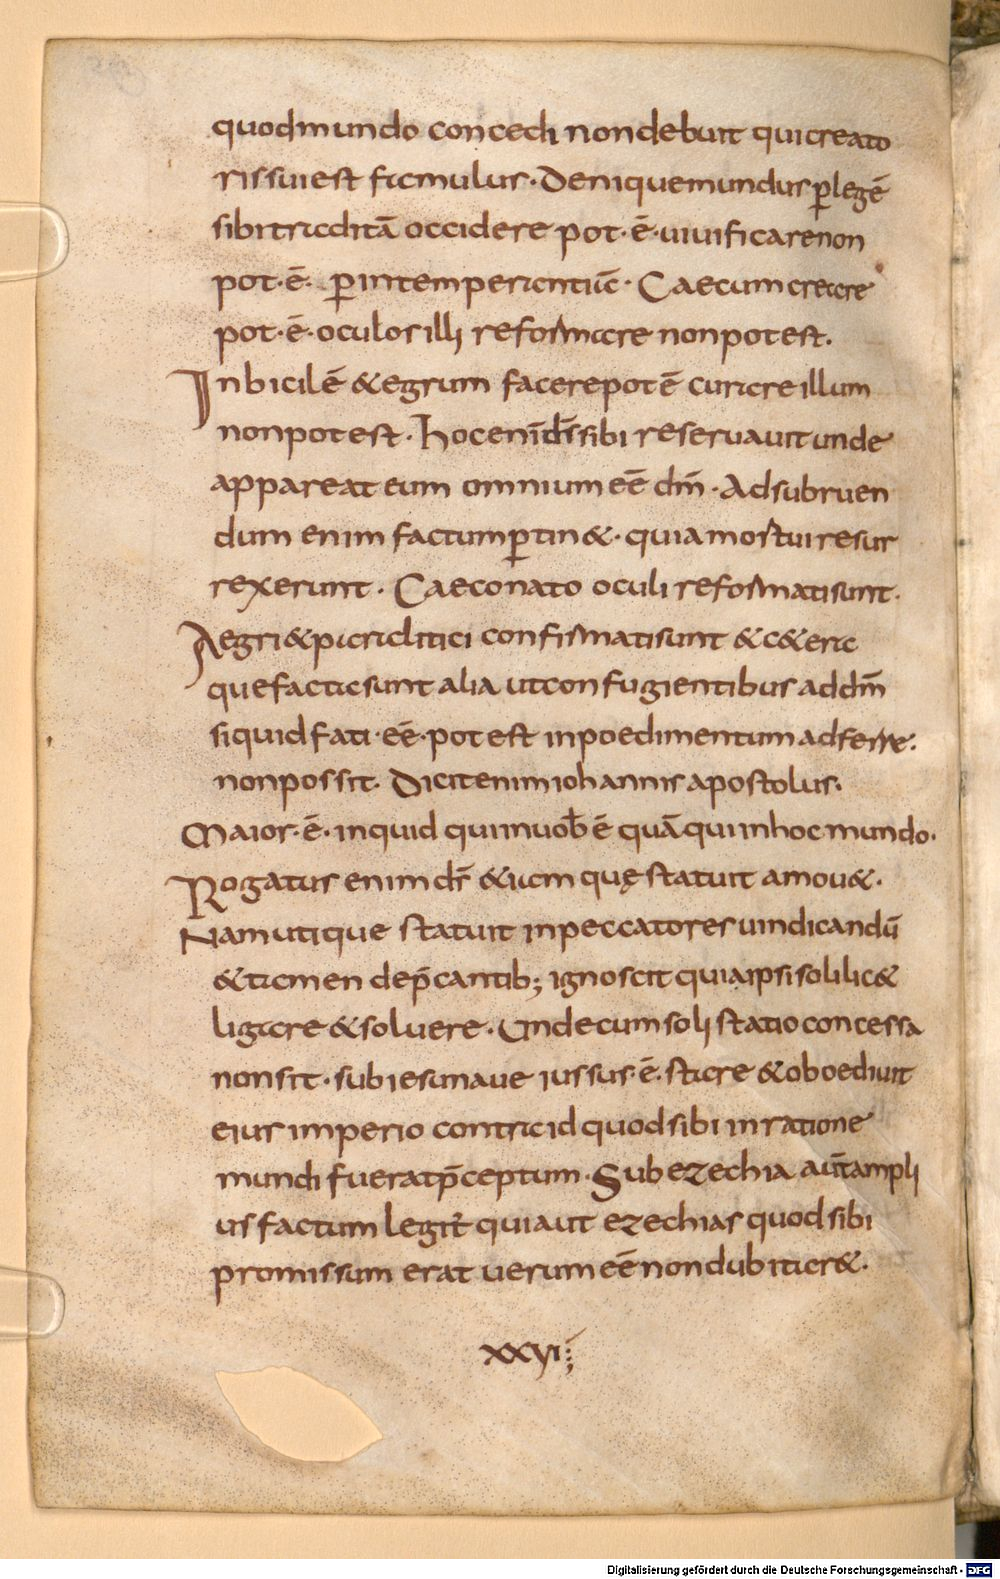 quodmundo concedi nondebuit quicreato
rissuiest famulus. Deniquemundus ꝑlegē
sibitraditā occidere pot·ē·uiuificarenon
pot·ē· ꝑintemperantiā· Caecumcreare
pot·ē·oculosilli reformare nonpotest.
Inbicilē &egrum facerepotē curareillum
nonpotest. Hocenīd̄s̄sibi reseruauitunde
appareateum omniumeē dm̄. Adsubruen
dum enim factumꝑtin&· quiamortuiresur
rexerunt. Caeconato oculi reformatisunt.
Aegri&paralitici confirmatisunt &c&era
quefactasunt alia utconfugientibus addm̄
siquidfati·eē·potest inpoedimentumadferre.
nonpossit. Dicitenimiohannis apostolus.
Maior·ē·inquid quiinuob̄ ē quāquiinhocmundo.
Rogatus enimds̄ &iam quęstatuit amou&.
Namutique statuit inpeccatoresuindicandū
&tamen dep̄cantib; ignoscit quiaipsisolilic&
ligare &soluere. Undecumsoli statioconcessa
nonsit. subiesunaue iussus·ē·stare &oboediuit
eius imperio contraid quodsibi inratione
mundi fueratp̄ceptum. Subezechia aūtampli
us factum legit̄ quiaut ezechias quodsibi
promissum erat uerumeēnondubitar&.
xxvi;
Digitalisierung gefördert durch die Deutsche Forschungsgemeinschaft - DFG